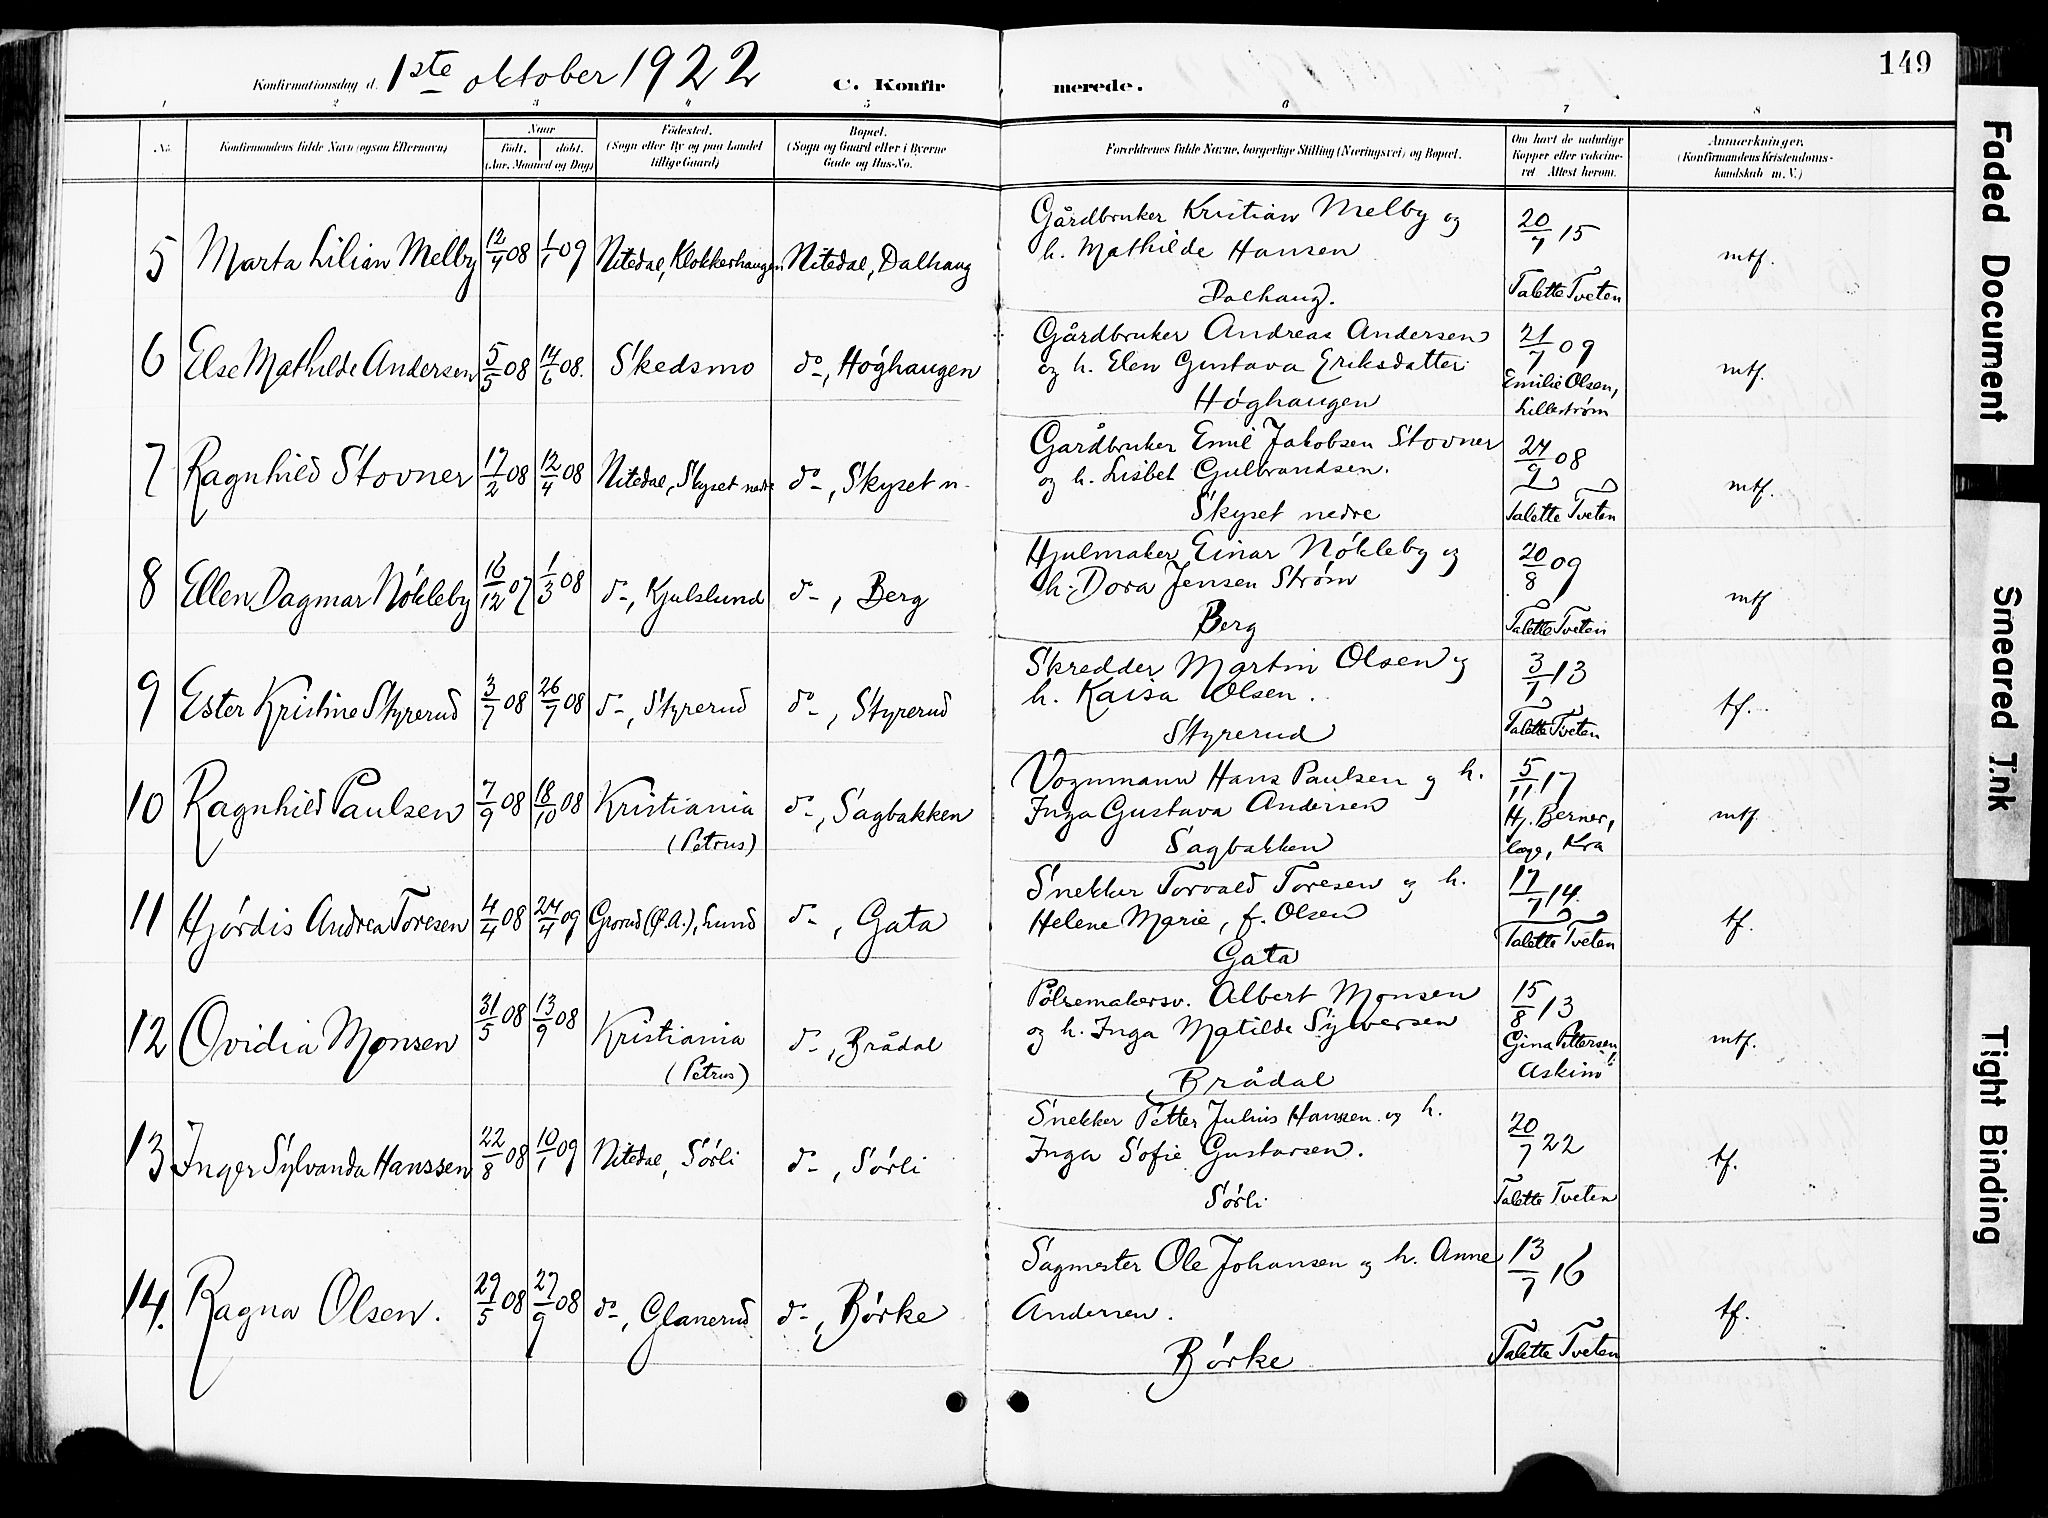 149
Konfirmationsdag d. 1ste oktober 1922 C. Konfirmerede.
1 2 3 4 5 6 7 8
No. Konfirmandens fulde Navn (ogsaa Efternavn) Naar født. døbt. (Aar, Maaned og Dag) Fødested. (Sogn eller By og paa Landet tillige Gaard.) Bopæl. (Sogn og Gaard eller i Byerne Gade og Hus-No. Forældrenes fulde Navne, borgerlige Stilling (Næringsvei) og Bopæl. Om havt de naturlige Kopper eller vaccineret Attest herom. Anmærkninger. (Konfirmandens Kristendomskundskab m. V.)
5 Marta Lilian Melby 08 1/1 09 Nitedal, Klokkerhaugen Nitedal, Dalhaug
Gårdbruker Kristian Melby og
h. Mathilde Hansen
Dalhaug.
20/7 15
Talette Tveten
mtf.
6 Else Mathilde Andersen 5/5 08 14/6 08. Skedsmo do, Høghaugen
Gårdbruker Andreas Andersen
og h. Elen Gustava Eriksdatter
Høghaugen
21/7 09
Emilie Olsen,
Lillestrøm
mtf.
7 Ragnhild Stovner 17/2 08 12/4 08 Nitedal, Skyset nedre do, Skyset n.
Gardbruker Emil Jakobsen Stovner
og h. Lisbet Gulbrandsen.
Skyset nedre
27/9 08
Talette Tveten
mtf.
8 Ellen Dagmar Nökleby 16/12 07 1/3 08 do, Kjulslund do, Berg
Hjulmaker Einar Nökleby og
h. Dora Jensen Strøm
Berg
20/8 09
Talette Tveten
mtf
9 Ester Kristine Styrerud 3/7 08 26/7 08 do, Styrerud do, Styrerud
Skredder Martin Olsen og
h. Kaisa Olsen.
Styrerud
3/7 13
Talette Tveten
tf.
10 Ragnhild Paulsen 7/9 08 18/10 08 Kristiania do, Sagbakken
(Petrus)
Vognmann Hans Paulsen og h.
Inga Gustava Andersen
Sagbakken
5/11 17
Hj. Berner,
læge, Kra
mtf.
11 Hjördis Andrea Toresen 4/4 08 09 Grorud (Ø.A.), Lund do, Gata
Snekker Torvald Toresen og h.
Helene Marie, f. Olsen
Gata
17/7 14.
Talette Tveten
tf.
12 Ovidia Monsen 31/5 08 13/9 08 Kristiania do, Brådal
(Petrus)
Pølsemakersv. Albert Monsen
og h. Inga Matilde Sylversen
Brådal
15/8 13
Gina Pettersen
Askim
mtf.
13 Inger Sylvanda Hanssen 22/8 08 10/1 09 Nitedal, Sörli do, Sørli
Snekker Petter Julius Hanssen og h.
Inga Sofie Gustavsen.
Sørli
20/7 22
Talette Tveten
tf.
14. Ragna Olsen. 29/5 08 27/9 08 do, Glanerud do, Børke
Sagmester Ole Johansen og h. Anne
Andersen.
Børke
13/7 16
Talette Tveten
tf.
Faded Document
Smeared Ink
Tight Binding